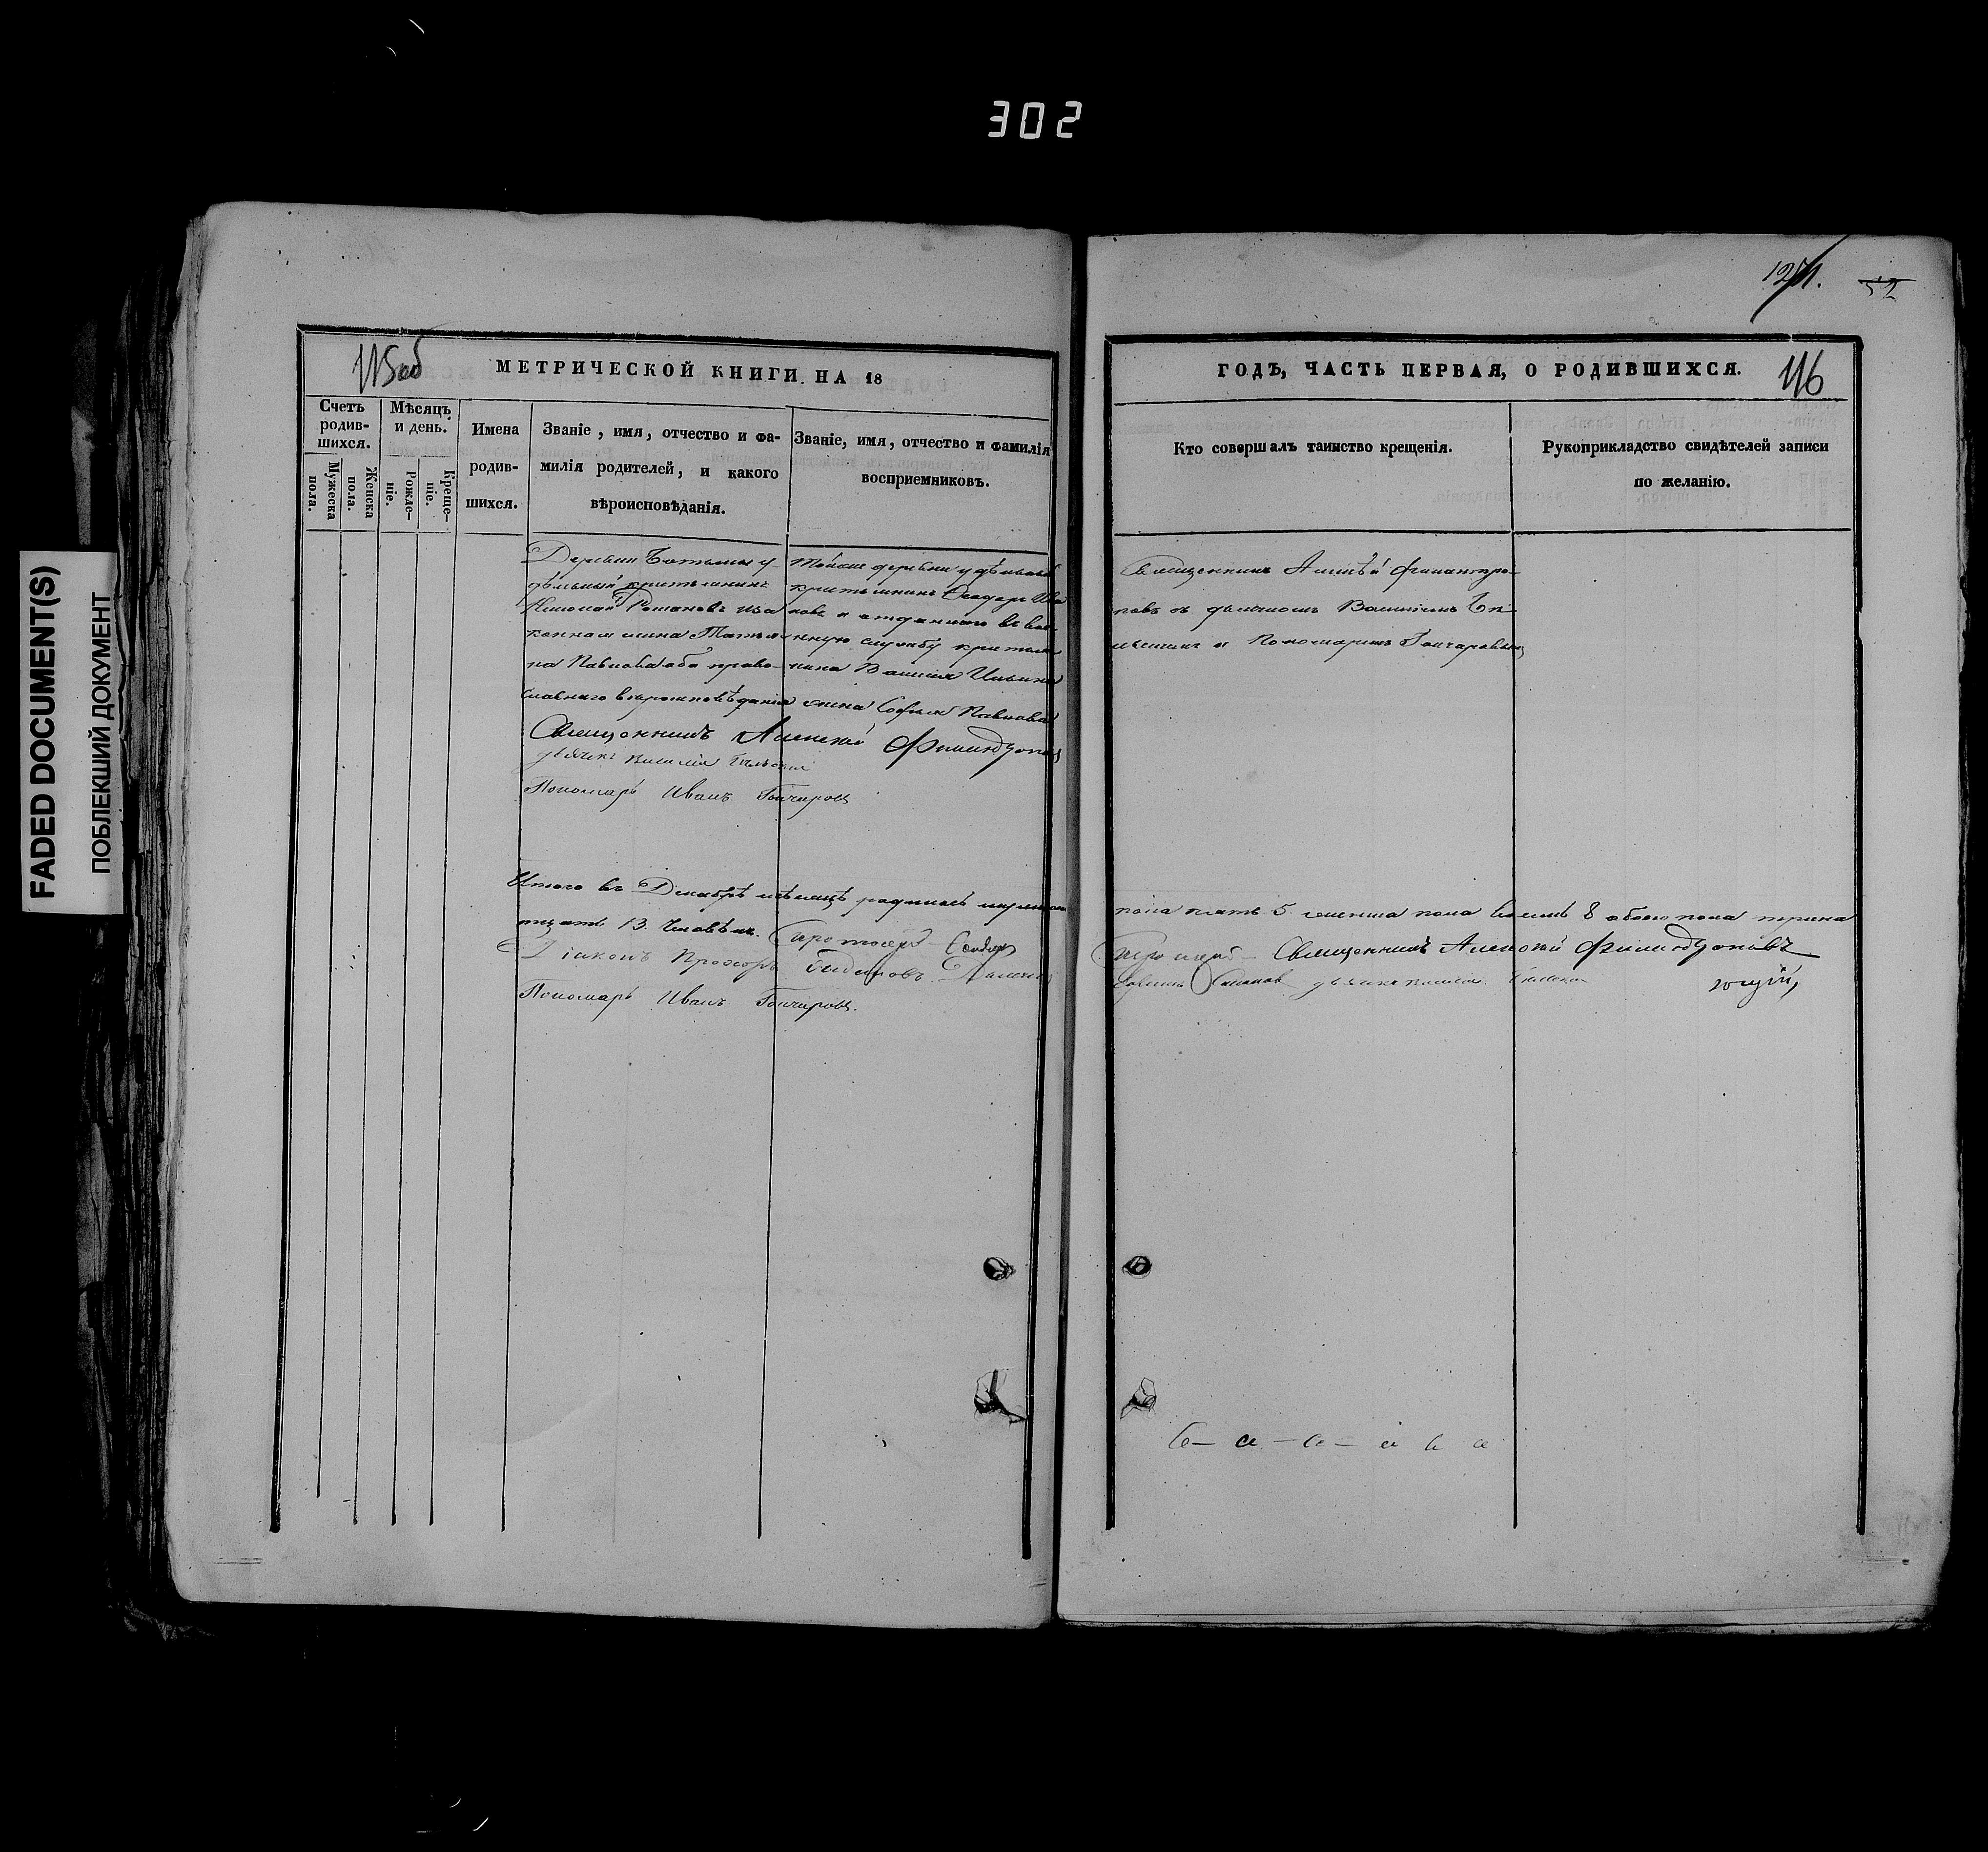 302
FADED DOCUMENT(S)
ПОБЛЕКШИЙ ДОКУМЕНТ
115об
МЕТРИЧЕСКОЙ КНИГИ НА 18
Счетъ родив-шихся.
Мужеска пола.
Женска пола.
Мѣсяцъ и день.
Рожде-ніе.
Креще-ніе.
Имена
родив-
шихся.
Званіе, имя, отчество и фа-
милія родителей, и какого
вѣроисповѣданія.
Званіе, имя, отчество и фамилія
восприемниковъ.
Деревни у-
дѣльный крестьянинъ
Николай Романовъ за-
конная жена Татья-
на Павлова оба право-
славнаго вѣроисповѣданія
тойже деревни удѣльной
крестьянинъ Ѳеодоръ Ива
новъ и отданнаго въ вое-
нную службу крестья
нина Василія Ильина
жена Софья Павлова
Священникъ Алексѣй
дьячекъ Василій
Пономарь Иванъ Гончаровъ
Итого въ Декабрѣ мѣсяцѣ родилось мужеска
тцать 13. Человѣкъ.
Діаконъ Прохоръ
Пономарь Иванъ Гончаровъ.
52
ГОДЪ, ЧАСТЬ ПЕРВАЯ, О РОДИВШИХСЯ.
116
Кто совершалъ таинство крещенія.
Рукоприкладство свидѣтелей записи
по желанію.
Священникъ Алексѣй Филантро-
повъ съ дьячкомъ Василіемъ
и Пономаремъ Гончаровымъ
пола пять 5 женска пола восемь 8 обоего пола трина
Священникъ Алексѣй
дьячекъ Василій